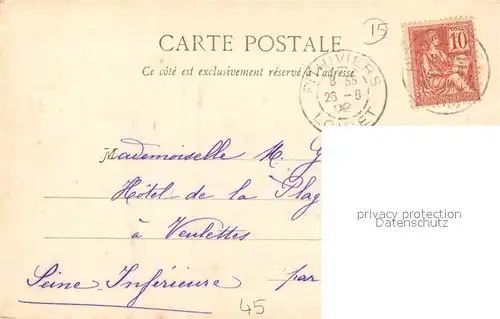 15
CARTE POSTALE
Ce côté est exclusivement réservé à l'adresse
PITHIVIERS
8 55
26 - 8
02
LOIRET
10
Mademoiselle M. G
Hôtel de la Plag
à Veulettes
Seine Inférieure par
privacy protection
Datenschutz
45